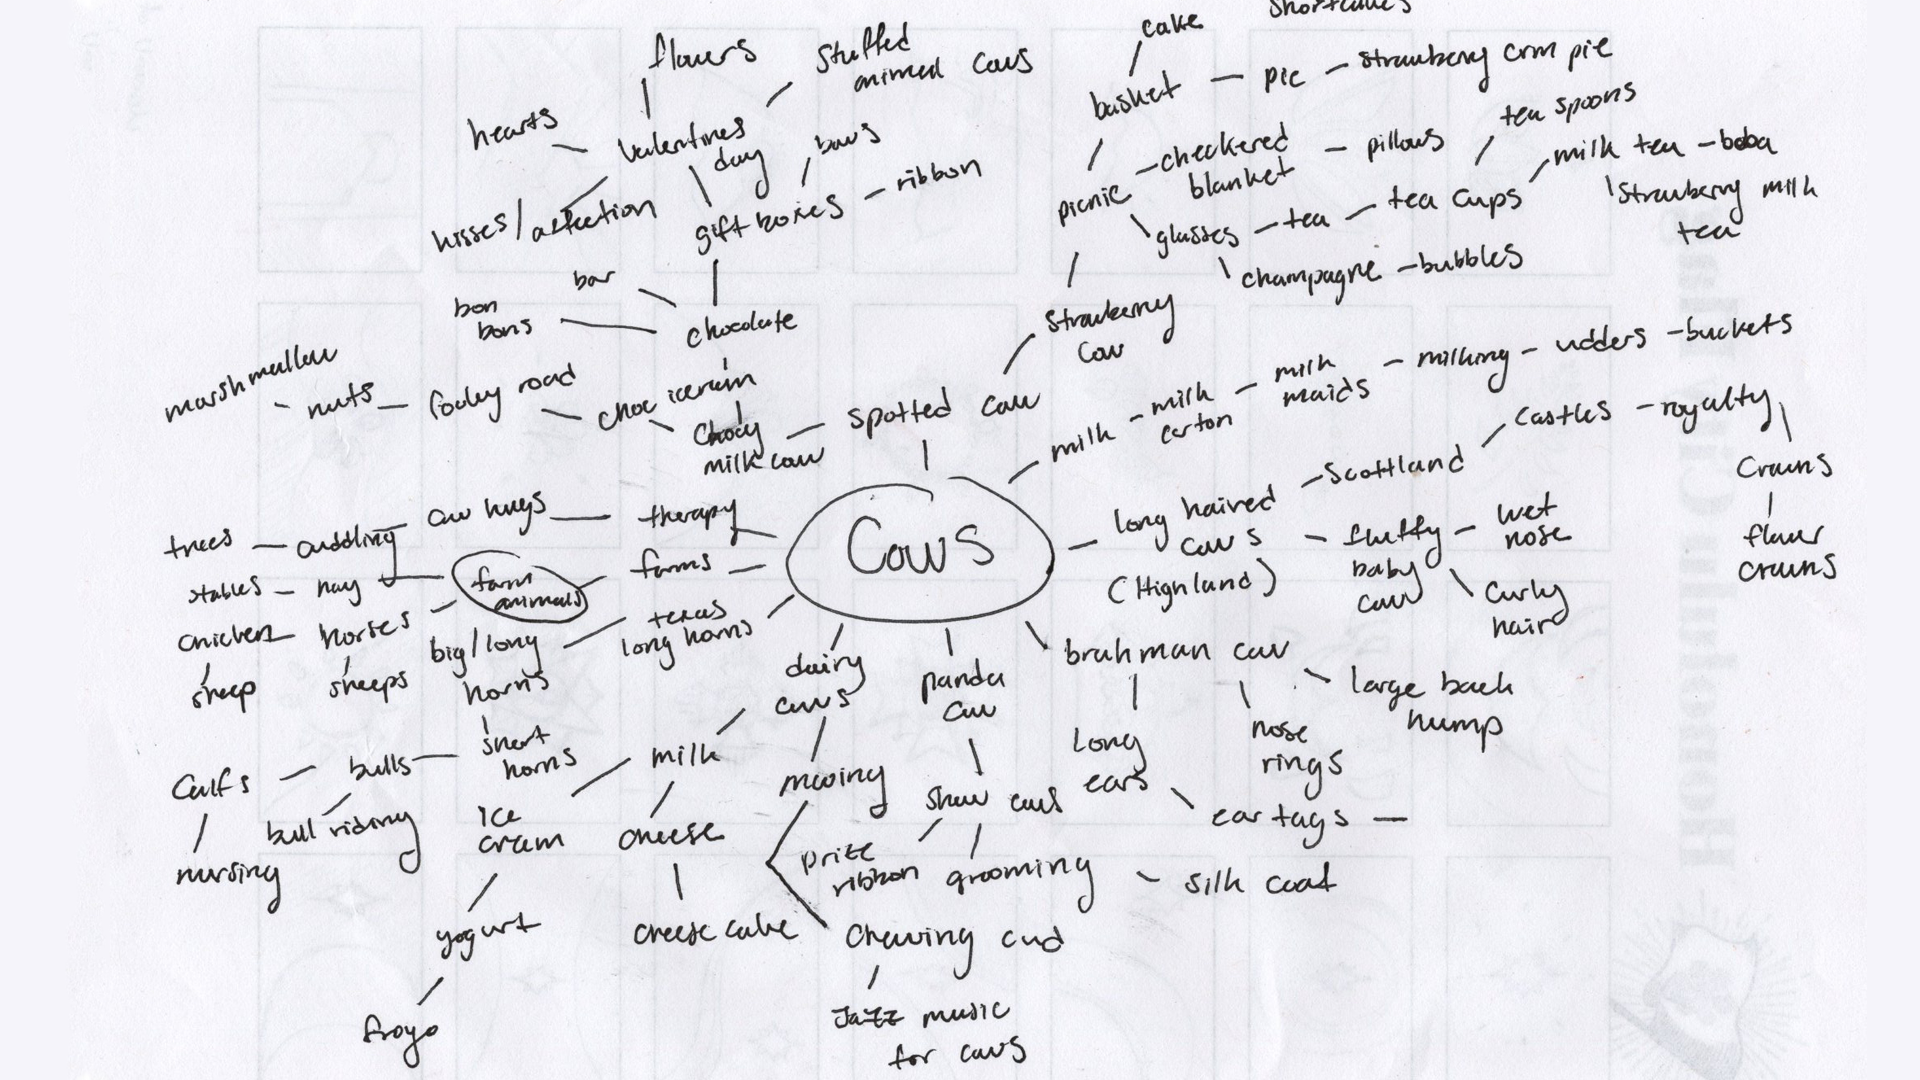 cake
shortcakes
flowers
stuffed
animal cows
basket – pie – strawberry crm pie
tea spoons
hearts
valentines
day
bows
ribbon
checkered
blanket
pillows
milk tea – boba
strawberry milk
tea
picnic
kisses/affection
gift boxes
glasses – tea – tea cups
champagne – bubbles
bar
bon
bons
chocolate
strawberry
cow
marshmallow
nuts
road
choc icecream
chocy
milk cow
spotted cow
milk – milk
carton
milk
maids
milking – udders – buckets
castles – royalty
crowns
flower
crowns
Scottland
long haired
cows
(Highland)
fluffy
baby
cow
wet
nose
curly
hair
trees – cuddling
cow hugs – therapy
Cows
stables – hay
farm
animals
farms
chicken
horses
sheep
sheeps
big/long
horns
texas
long horns
short
horns
calfs – bulls
bull riding
nursing
dairy
cows
panda
cow
brahman cow
large back
hump
long
ears
nose
rings
ear tags –
milk
mooing
show cows
ice
cream
cheese
prize
ribbon
grooming – silk coat
yogurt
cheese cake
chewing cud
froyo
Jazz music
for cows